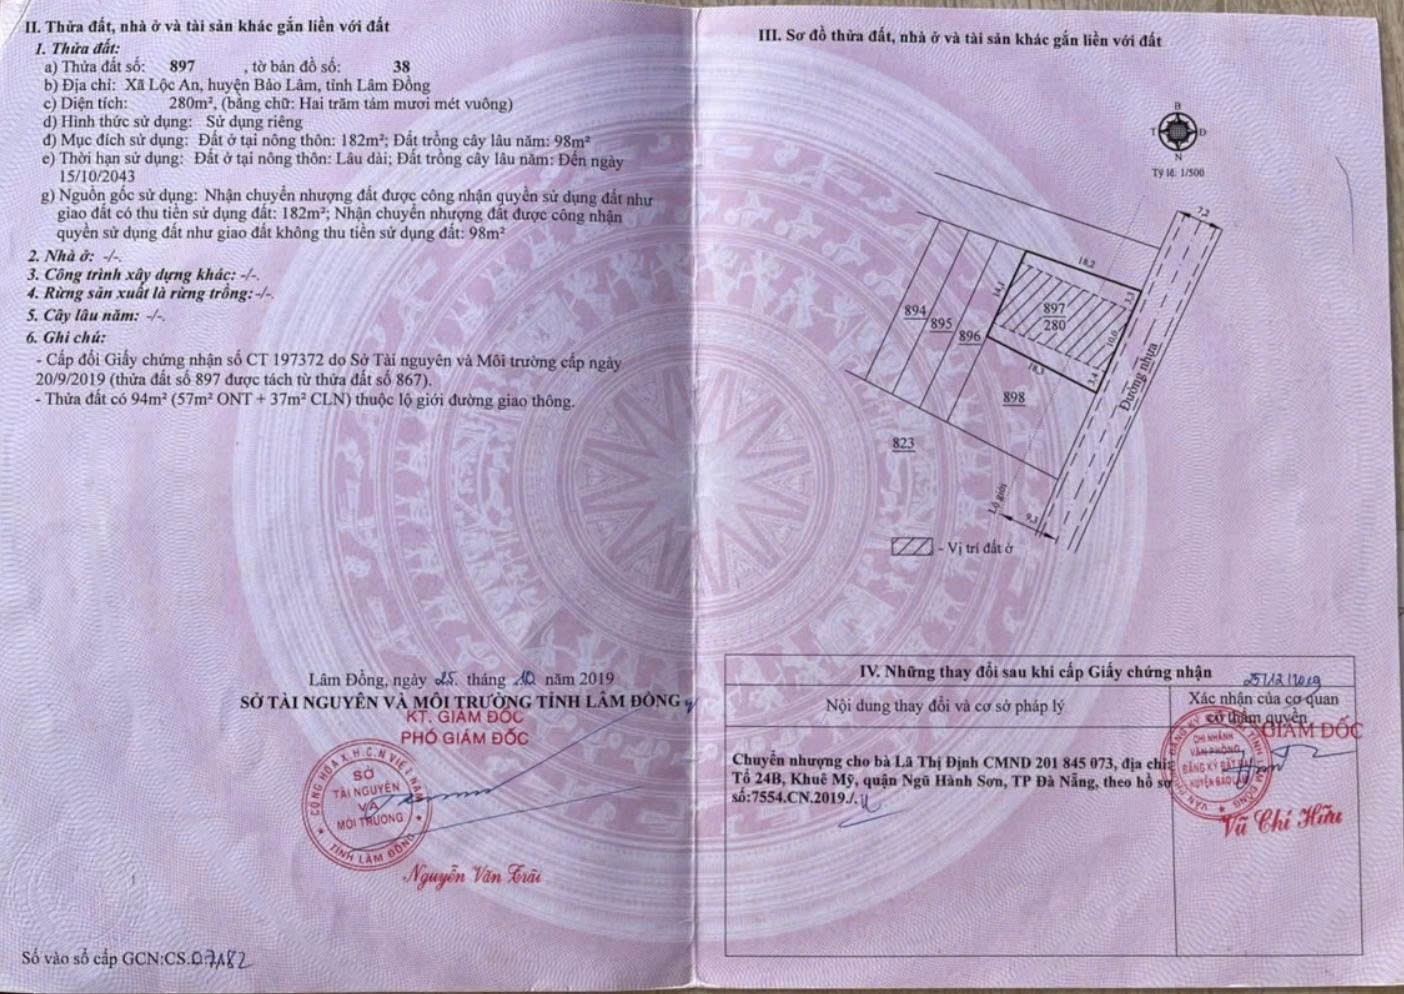 II. Thửa đất, nhà ở và tài sản khác gắn liền với đất
1. Thửa đất:
a) Thửa đất số: 897 , tờ bản đồ số: 38
b) Địa chỉ: Xã Lộc An, huyện Bảo Lâm, tỉnh Lâm Đồng
c) Diện tích: 280m², (bằng chữ: Hai trăm tám mươi mét vuông)
d) Hình thức sử dụng: Sử dụng riêng
đ) Mục đích sử dụng: Đất ở tại nông thôn: 182m²; Đất trồng cây lâu năm: 98m²
e) Thời hạn sử dụng: Đất ở tại nông thôn: Lâu dài; Đất trồng cây lâu năm: Đến ngày
15/10/2043
g) Nguồn gốc sử dụng: Nhận chuyển nhượng đất được công nhận quyền sử dụng đất như
giao đất có thu tiền sử dụng đất: 182m²; Nhận chuyển nhượng đất được công nhận
quyền sử dụng đất như giao đất không thu tiền sử dụng đất: 98m²
2. Nhà ở: -/-.
3. Công trình xây dựng khác: -/-.
4. Rừng sản xuất là rừng trồng: -/-.
5. Cây lâu năm: -/-.
6. Ghi chú:
- Cấp đổi Giấy chứng nhận số CT 197372 do Sở Tài nguyên và Môi trường cấp ngày
20/9/2019 (thửa đất số 897 được tách từ thửa đất số 867).
- Thửa đất có 94m² (57m² ONT + 37m² CLN) thuộc lộ giới đường giao thông.
Lâm Đồng, ngày 25 tháng 10 năm 2019
SỞ TÀI NGUYÊN VÀ MÔI TRƯỜNG TỈNH LÂM ĐỒNG
KT. GIÁM ĐỐC
PHÓ GIÁM ĐỐC
CỘNG HÒA X.H.C.N VIỆT NAM
SỞ
TÀI NGUYÊN
VÀ
MÔI TRƯỜNG
TỈNH LÂM ĐỒNG
Nguyễn Văn Trãi
Số vào sổ cấp GCN:CS.07182
III. Sơ đồ thửa đất, nhà ở và tài sản khác gắn liền với đất
B
T Đ
N
Tỷ lệ: 1/500
7,2
18,2
14,1
3,3
897
280
10,0
894
895
896
18,3
3,4
Đường nhựa
898
823
Lộ giới
9,3
- Vị trí đất ở
IV. Những thay đổi sau khi cấp Giấy chứng nhận
Nội dung thay đổi và cơ sở pháp lý
Xác nhận của cơ quan
có thẩm quyền
25/12/2019
GIÁM ĐỐC
Chuyển nhượng cho bà Lã Thị Định CMND 201 845 073, địa chỉ:
Tổ 24B, Khuê Mỹ, quận Ngũ Hành Sơn, TP Đà Nẵng, theo hồ sơ
số:7554.CN.2019./.
CHI NHÁNH
VĂN PHÒNG
ĐĂNG KÝ ĐẤT ĐAI
HUYỆN BẢO LÂM
Vũ Chí Hữu